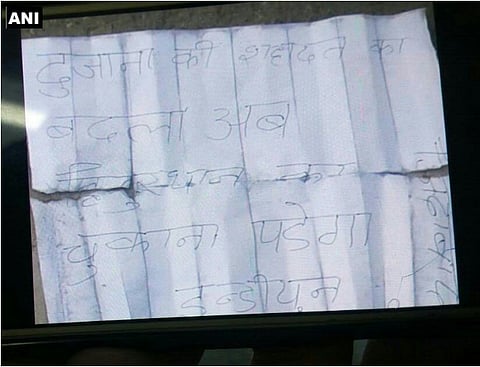 ANI
दुजाना की शहादत का
बदला अब
हिन्दुस्थान का
चुकाना पडेगा
इन्डीयन